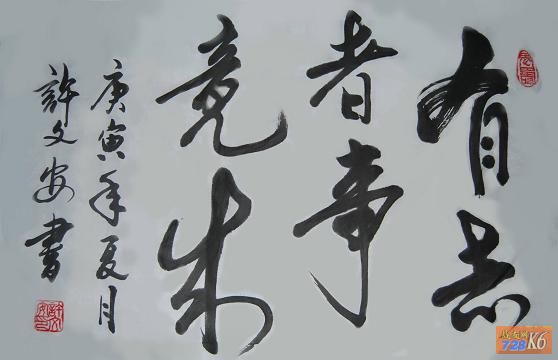 有志
者事
竟成
庚寅年夏月
許文安書
728K6